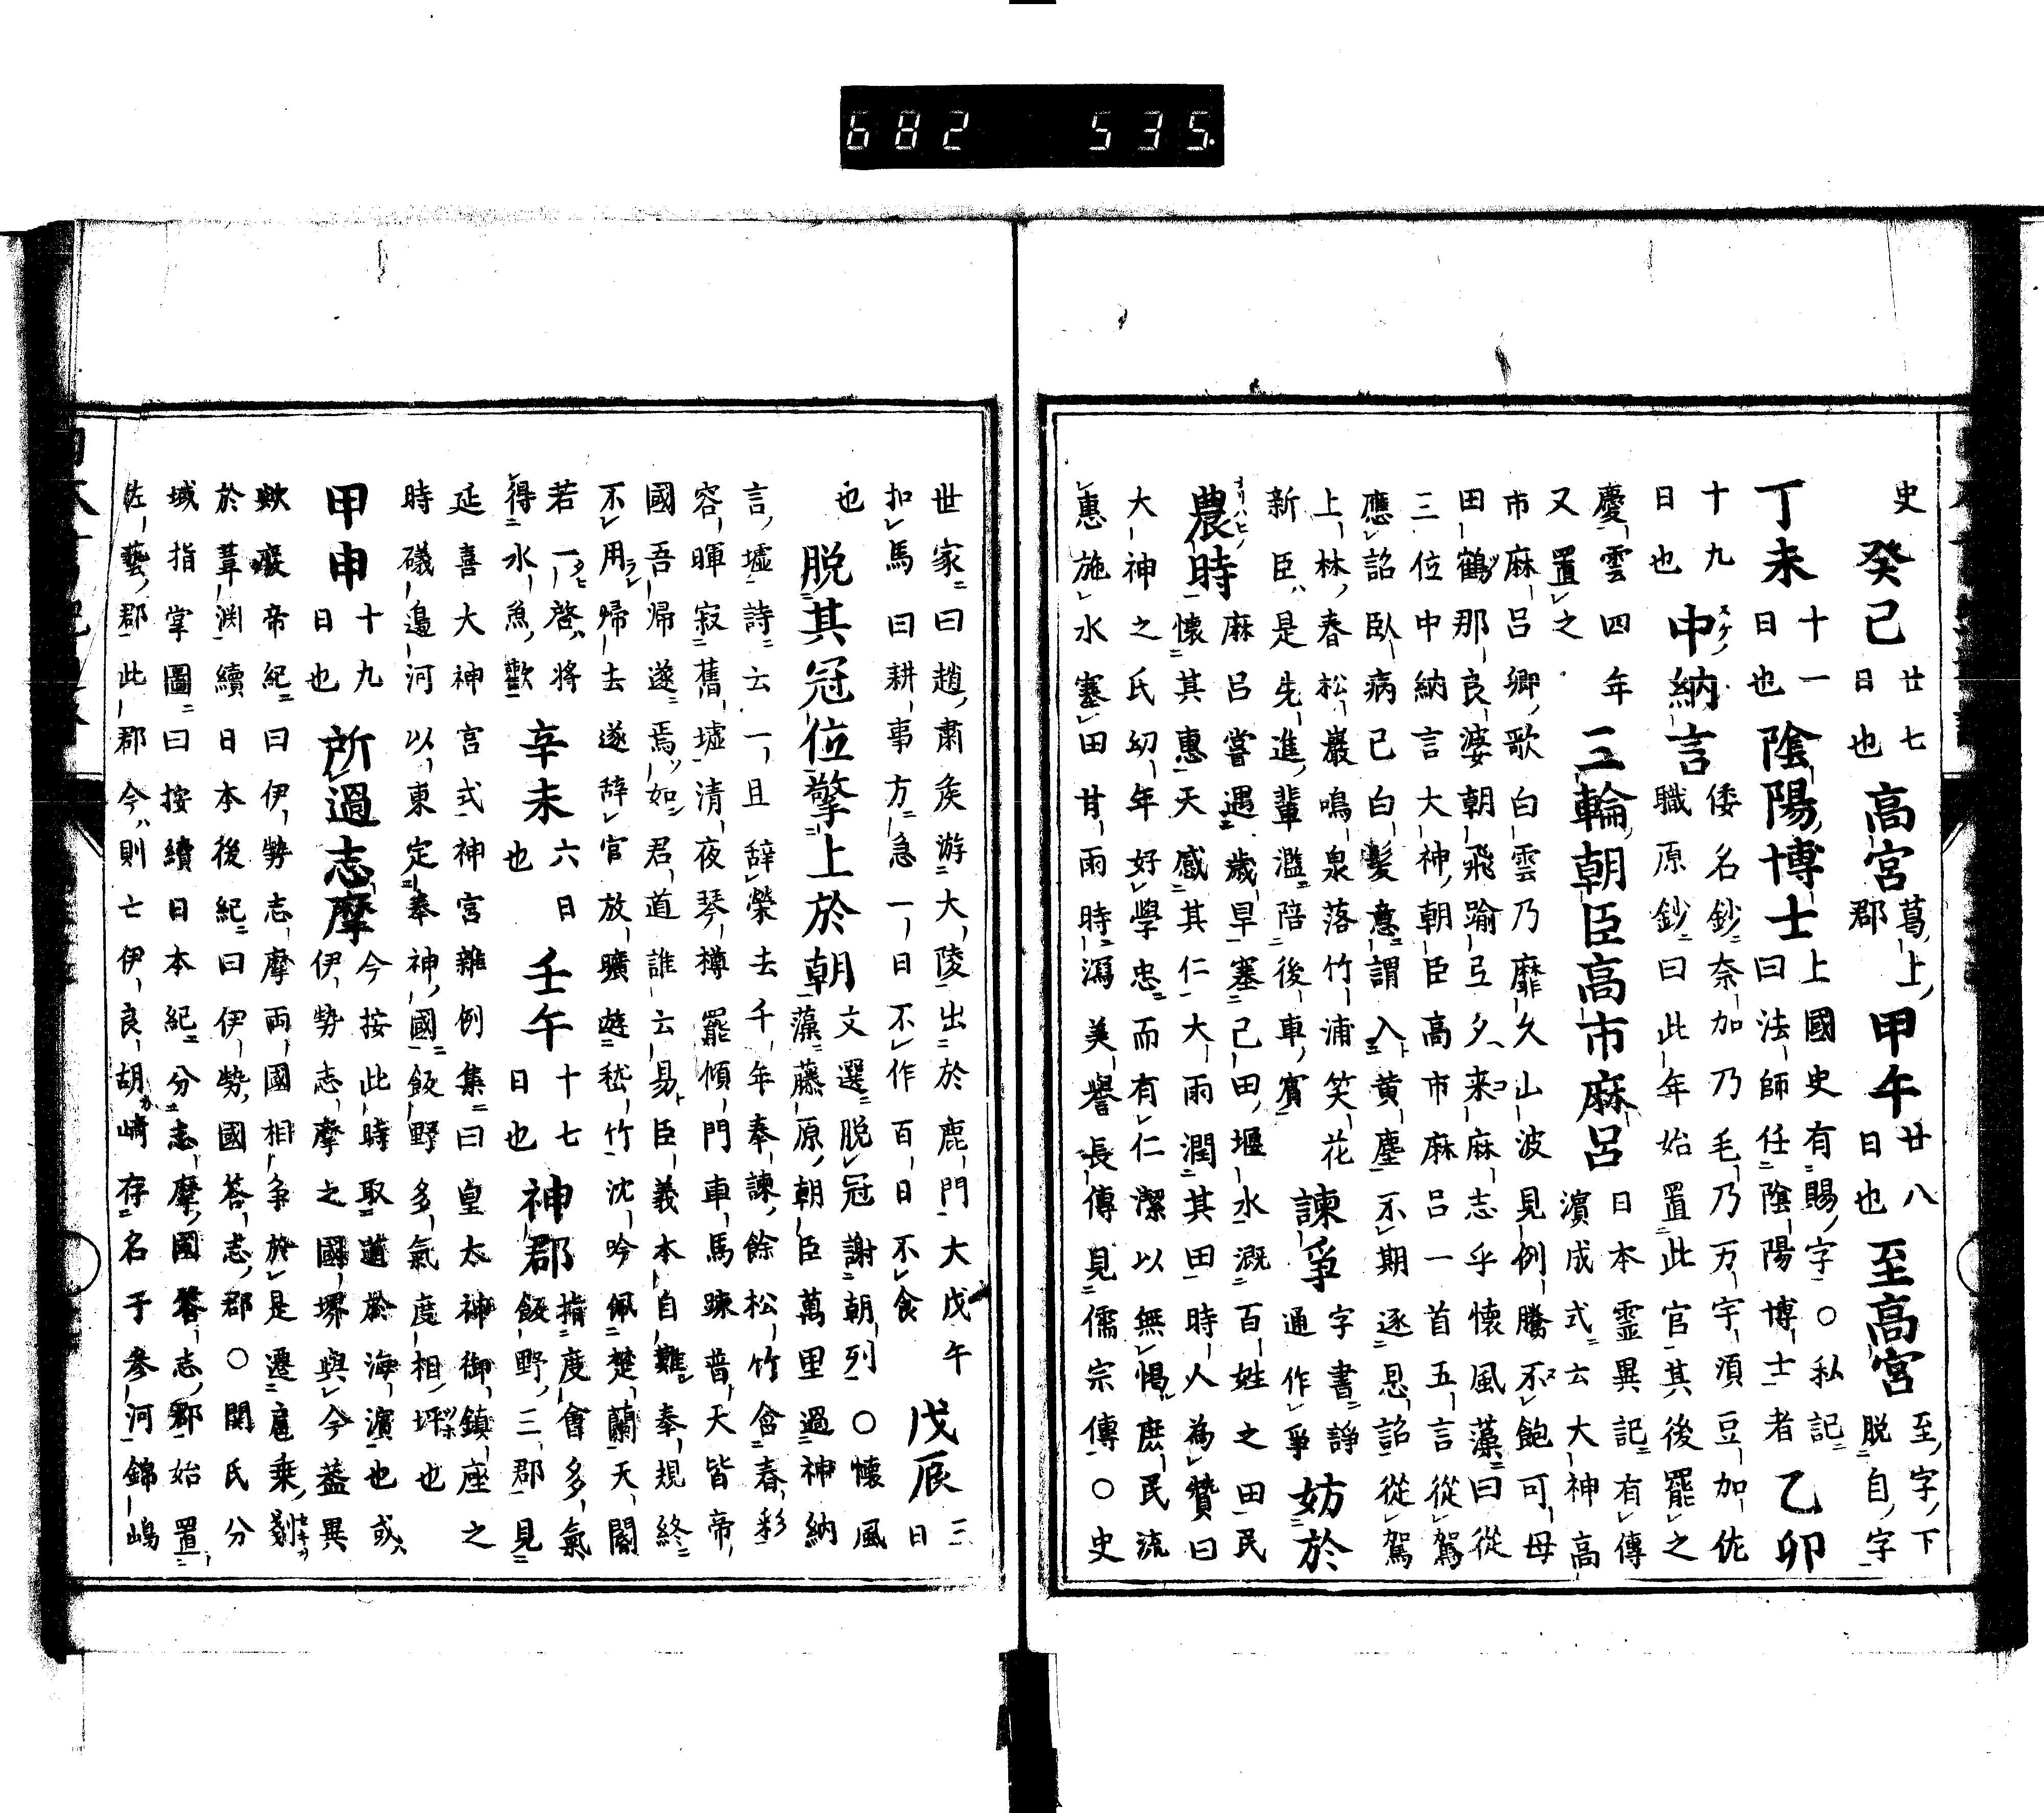 682 535
史
癸巳 廿七日也 高宮 葛上郡 甲午 廿八日也 至高宮 至字下脱自字
丁未 十一日也 陰陽博士 上國史有賜字○私記曰法師任陰陽博士者 乙卯
十九日也 中納言 倭名鈔奈加乃毛乃万宇須豆加佐職原鈔曰此年始置此官其後罷之
慶雲四年又置之 三輪朝臣高市麻呂 日本霊異記有傳濱成式云大神高
市麻呂卿歌白雲乃靡久山波見例騰不飽可母
田鶴那良婆朝飛踰弖夕来麻志乎懐風藻曰從
三位中納言大神朝臣高市麻呂一首五言從駕
應詔臥病已白髮意謂入黄塵不期逐恩詔從駕
上林春松巖鳴泉落竹浦笑花
新臣是先進輩濫陪後車賓 諫爭 字書諍通作爭 妨於
農時 麻呂嘗遇歳旱塞己田堰水漑百姓之田民懐其惠天感其仁大雨潤其田時人為賛曰
大神之氏幼年好學忠而有仁潔以無惕庶民流
惠施水塞田甘雨時瀉美譽長傳見儒宗傳○史
世家曰趙肅矦游大陵出於鹿門大戊午
扣馬曰耕事方急一日不作百日不食 戊辰 三日
也 脱其冠位擎上於朝 文選脱冠謝朝列○懐風藻藤原朝臣萬里過神納
言墟詩云一且辞榮去千年奉諫餘松竹含春彩
容暉寂舊墟清夜琴樽罷傾門車馬踈普天皆帝
國吾帰遂焉如君道誰云易臣義本自難奉規終
不用帰去遂辞官放曠遊嵇竹沈吟佩楚蘭天閽
若一啓将得水魚歡 辛未 六日也 壬午 十七日也 神郡 指度會多氣飯野三郡見
延喜大神宮式神宮雜例集曰皇太神御鎮座之
時礒邉河以東定奉神國飯野多氣度相坪也
甲申 十九日也 所過志摩 今按此時取道於海濱也或伊勢志摩之國堺與今葢異
歟癈帝紀曰伊勢志摩兩國相争於是遷扈乗剗
於葺渊續日本後紀曰伊勢國荅志郡○関氏分
域指掌圖曰按續日本紀分志摩國荅志郡始置
佐藝郡此郡今則亡伊良胡﨑存名于参河錦嶋